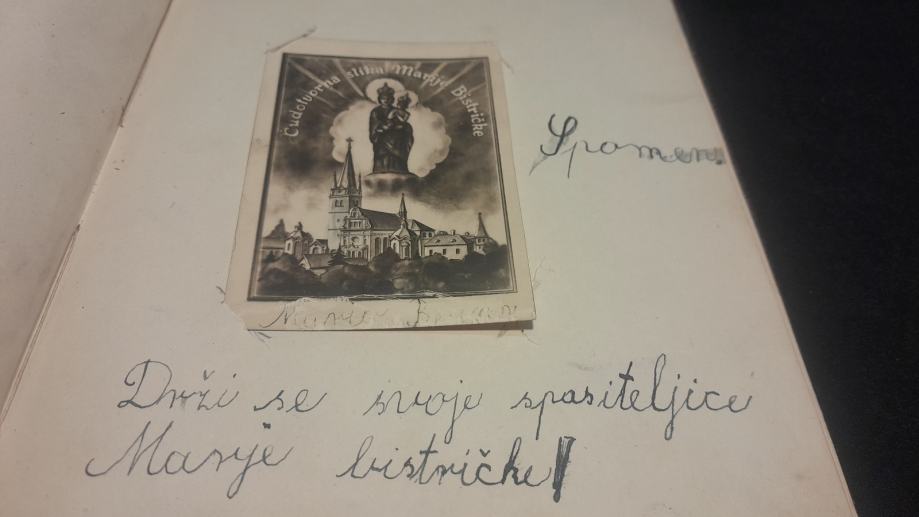 Čudotvorna slika Marije Bistričke
Spomen
Drži se svoje spasiteljice
Marije bistričke!